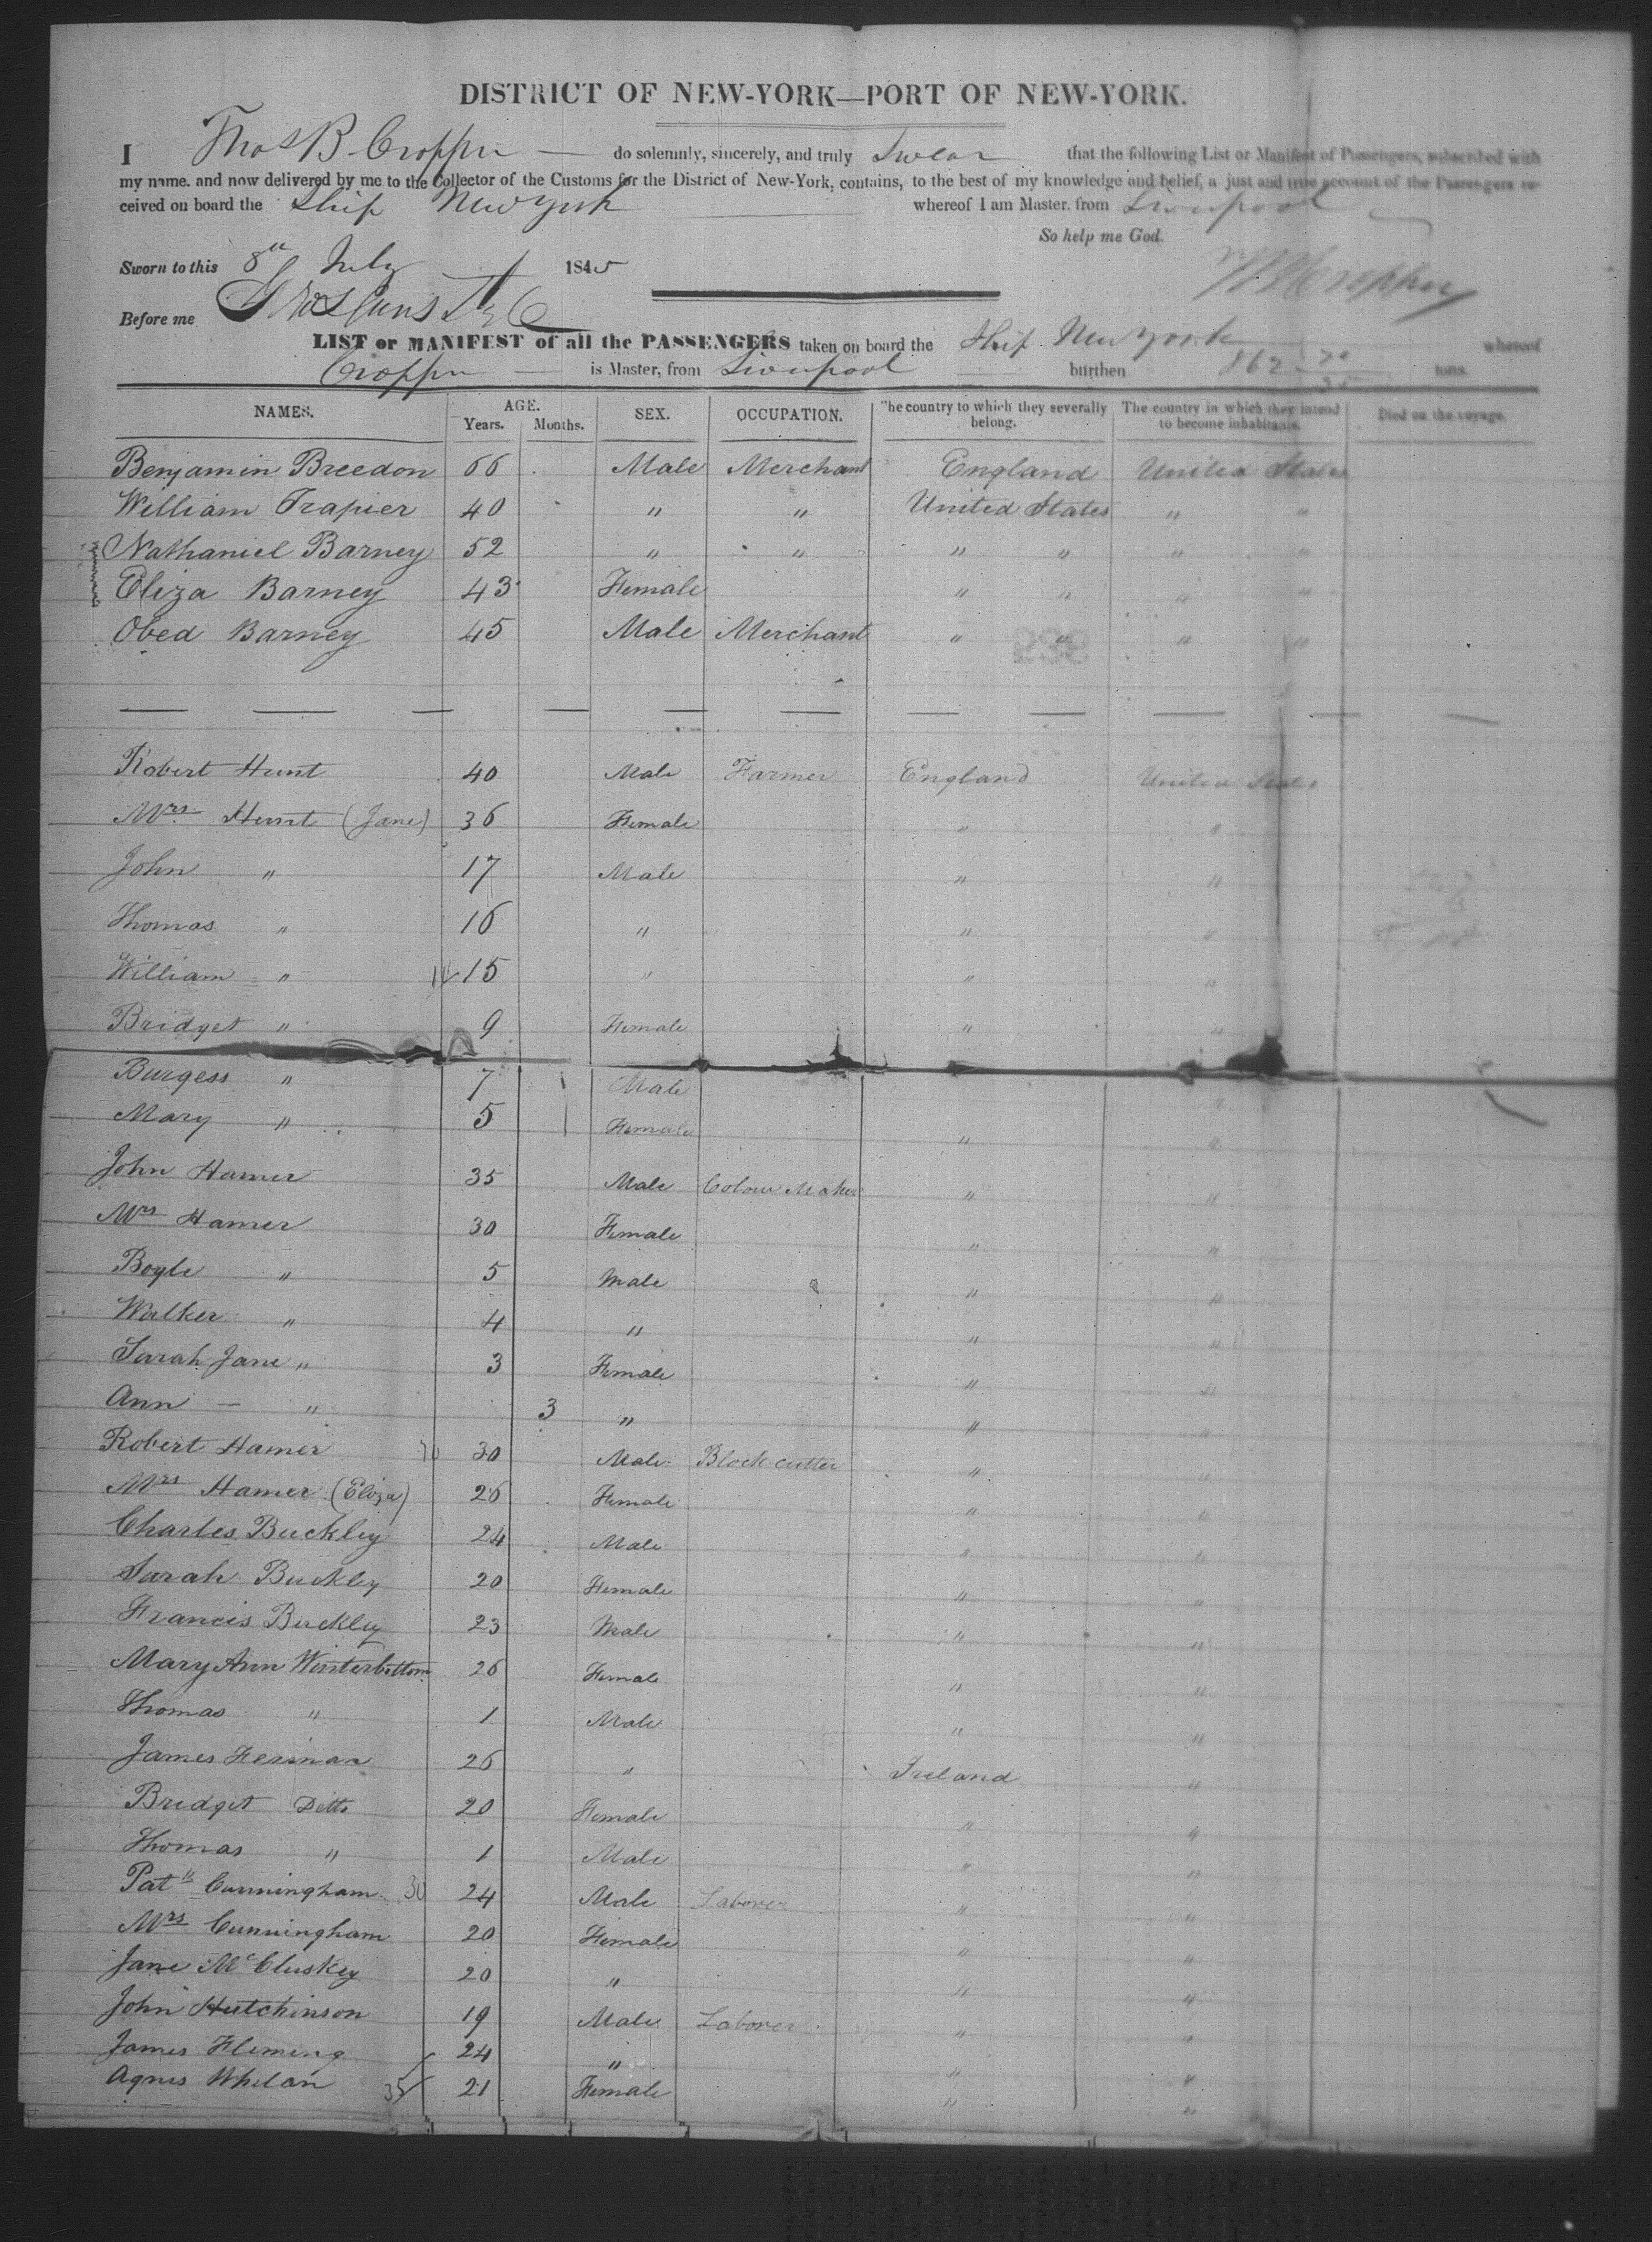 DISTRICT OF NEW-YORK—PORT OF NEW-YORK.
I Thos B. Cropper — do solemnly, sincerely, and truly Swear that the following List or Manifest of Passengers, subscribed with
my name. and now delivered by me to the Collector of the Customs for the District of New-York, contains, to the best of my knowledge and belief, a just and true account of the Passengers re-
ceived on board the Ship New York whereof I am Master. from Liverpool
So help me God.
Sworn to this 8th July 1845
Before me
LIST or MANIFEST of all the PASSENGERS taken on board the Ship New York whereof
Cropper is Master, from Liverpool burthen 862 tons.
NAMES. AGE. Years. Months. SEX. OCCUPATION. The country to which they severally belong. The country in which they intend to become inhabitants. Died on the voyage.
Benjamin Breedon 66 Male Merchant England United States
William Trapier 40 " " United States " "
Nathaniel Barney 52 " " " " " "
Eliza Barney 43 Female " " " "
Obed Barney 45 Male Merchant " " " "
Robert Hunt 40 Male Farmer England United States
Mrs. Hunt (Jane) 36 Female " "
John " 17 Male " "
Thomas " 16 " " "
William " 15 " " "
Bridget " 9 Female " "
Burgess " 7 Male "
Mary " 5 Female " "
John Hamer 35 Male Colour Maker " "
Mrs Hamer 30 Female " "
Boyle " 5 Male " "
Walker " 4 " " "
Sarah Jane " 3 Female " "
Ann — " 3 " " "
Robert Hamer 30 Male Block cutter " "
Mrs Hamer (Eliza) 26 Female " "
Charles Buckley 24 Male " "
Sarah Buckley 20 Female " "
Francis Buckley 23 Male " "
Mary Ann Winterbottom 26 Female " "
Thomas " 1 Male " "
James 26 " Ireland "
Bridget Ditto 20 Female " "
Thomas " 1 Male " "
Patk Cunningham 30 24 Male Laborer " "
Mrs Cunningham 20 Female " "
Jane McCluskey 20 " " "
John Hutchinson 19 Male Laborer " "
James Fleming 24 " " "
Agnes Whelan 35 21 Female " "